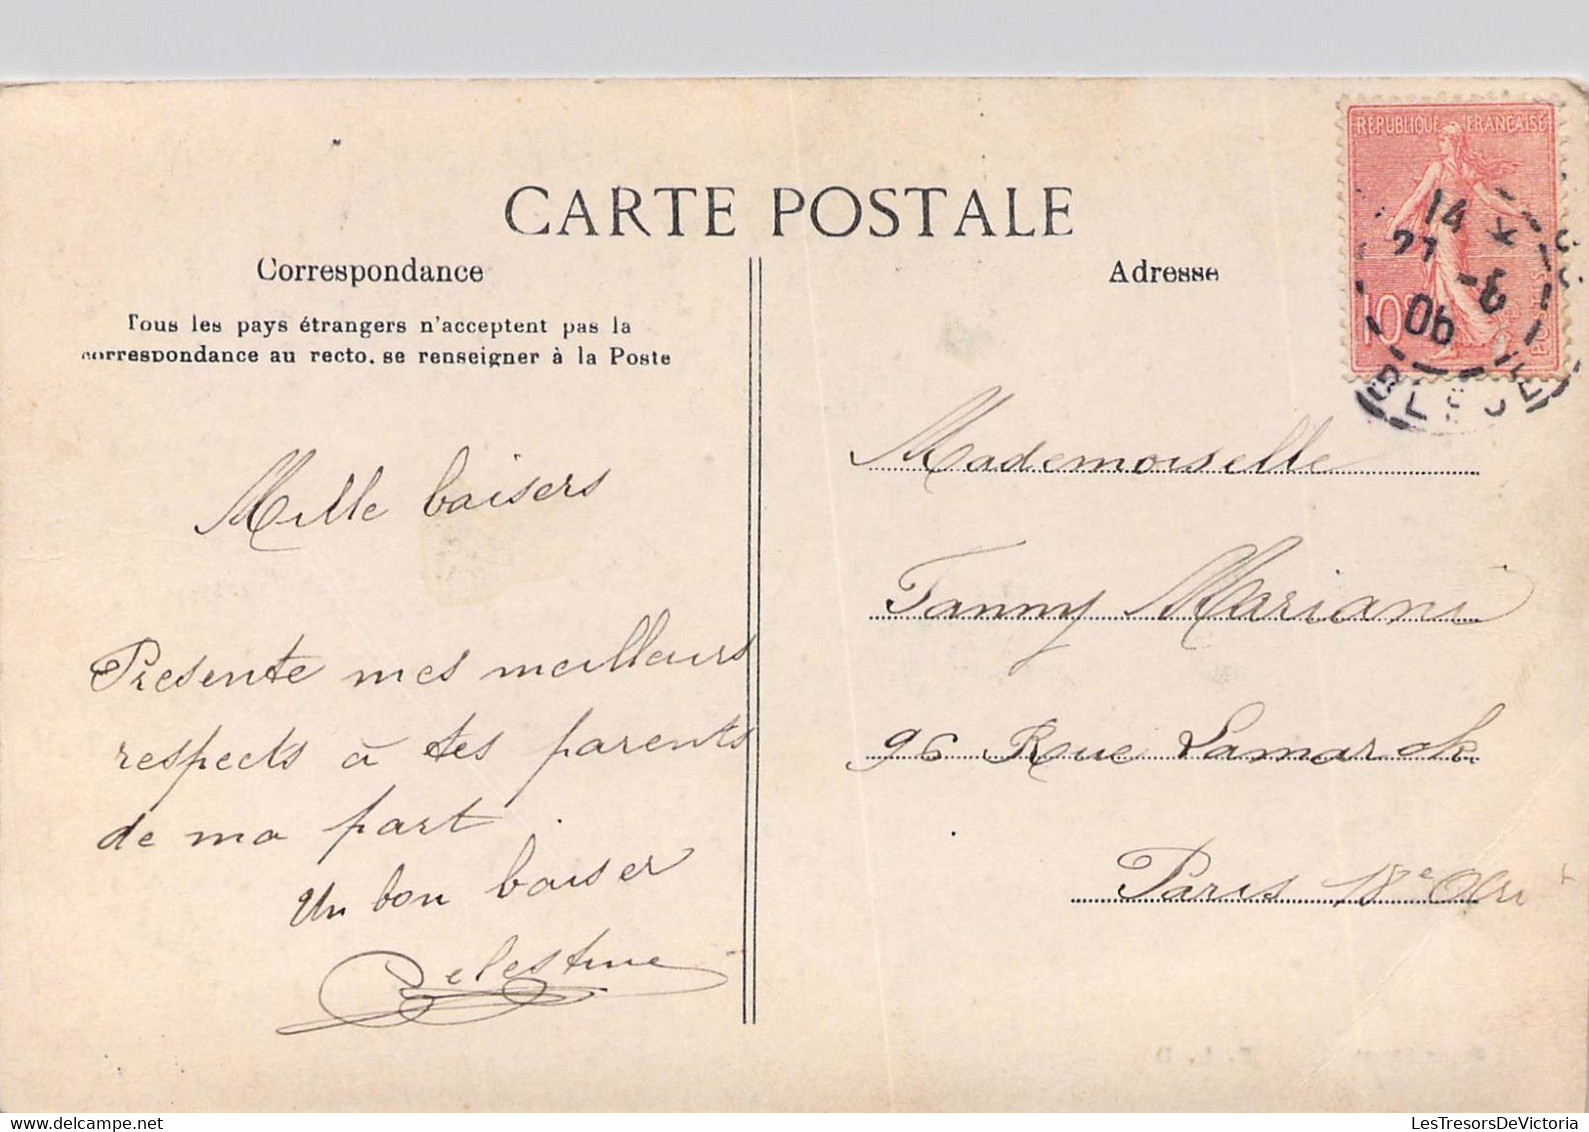 CARTE POSTALE
Correspondance
Tous les pays étrangers n'acceptent pas la
correspondance au recto, se renseigner à la Poste
Mille baisers
Presente mes meilleurs
respects à tes parents
de ma part.
Un bon baiser
Celestine
Adresse
Mademoiselle
Fanny Mariani
96 Rue Lamarck
Paris 18e
RÉPUBLIQUE FRANÇAISE
10c
POSTES
14
21 -6
06
LesTresorsDeVictoria